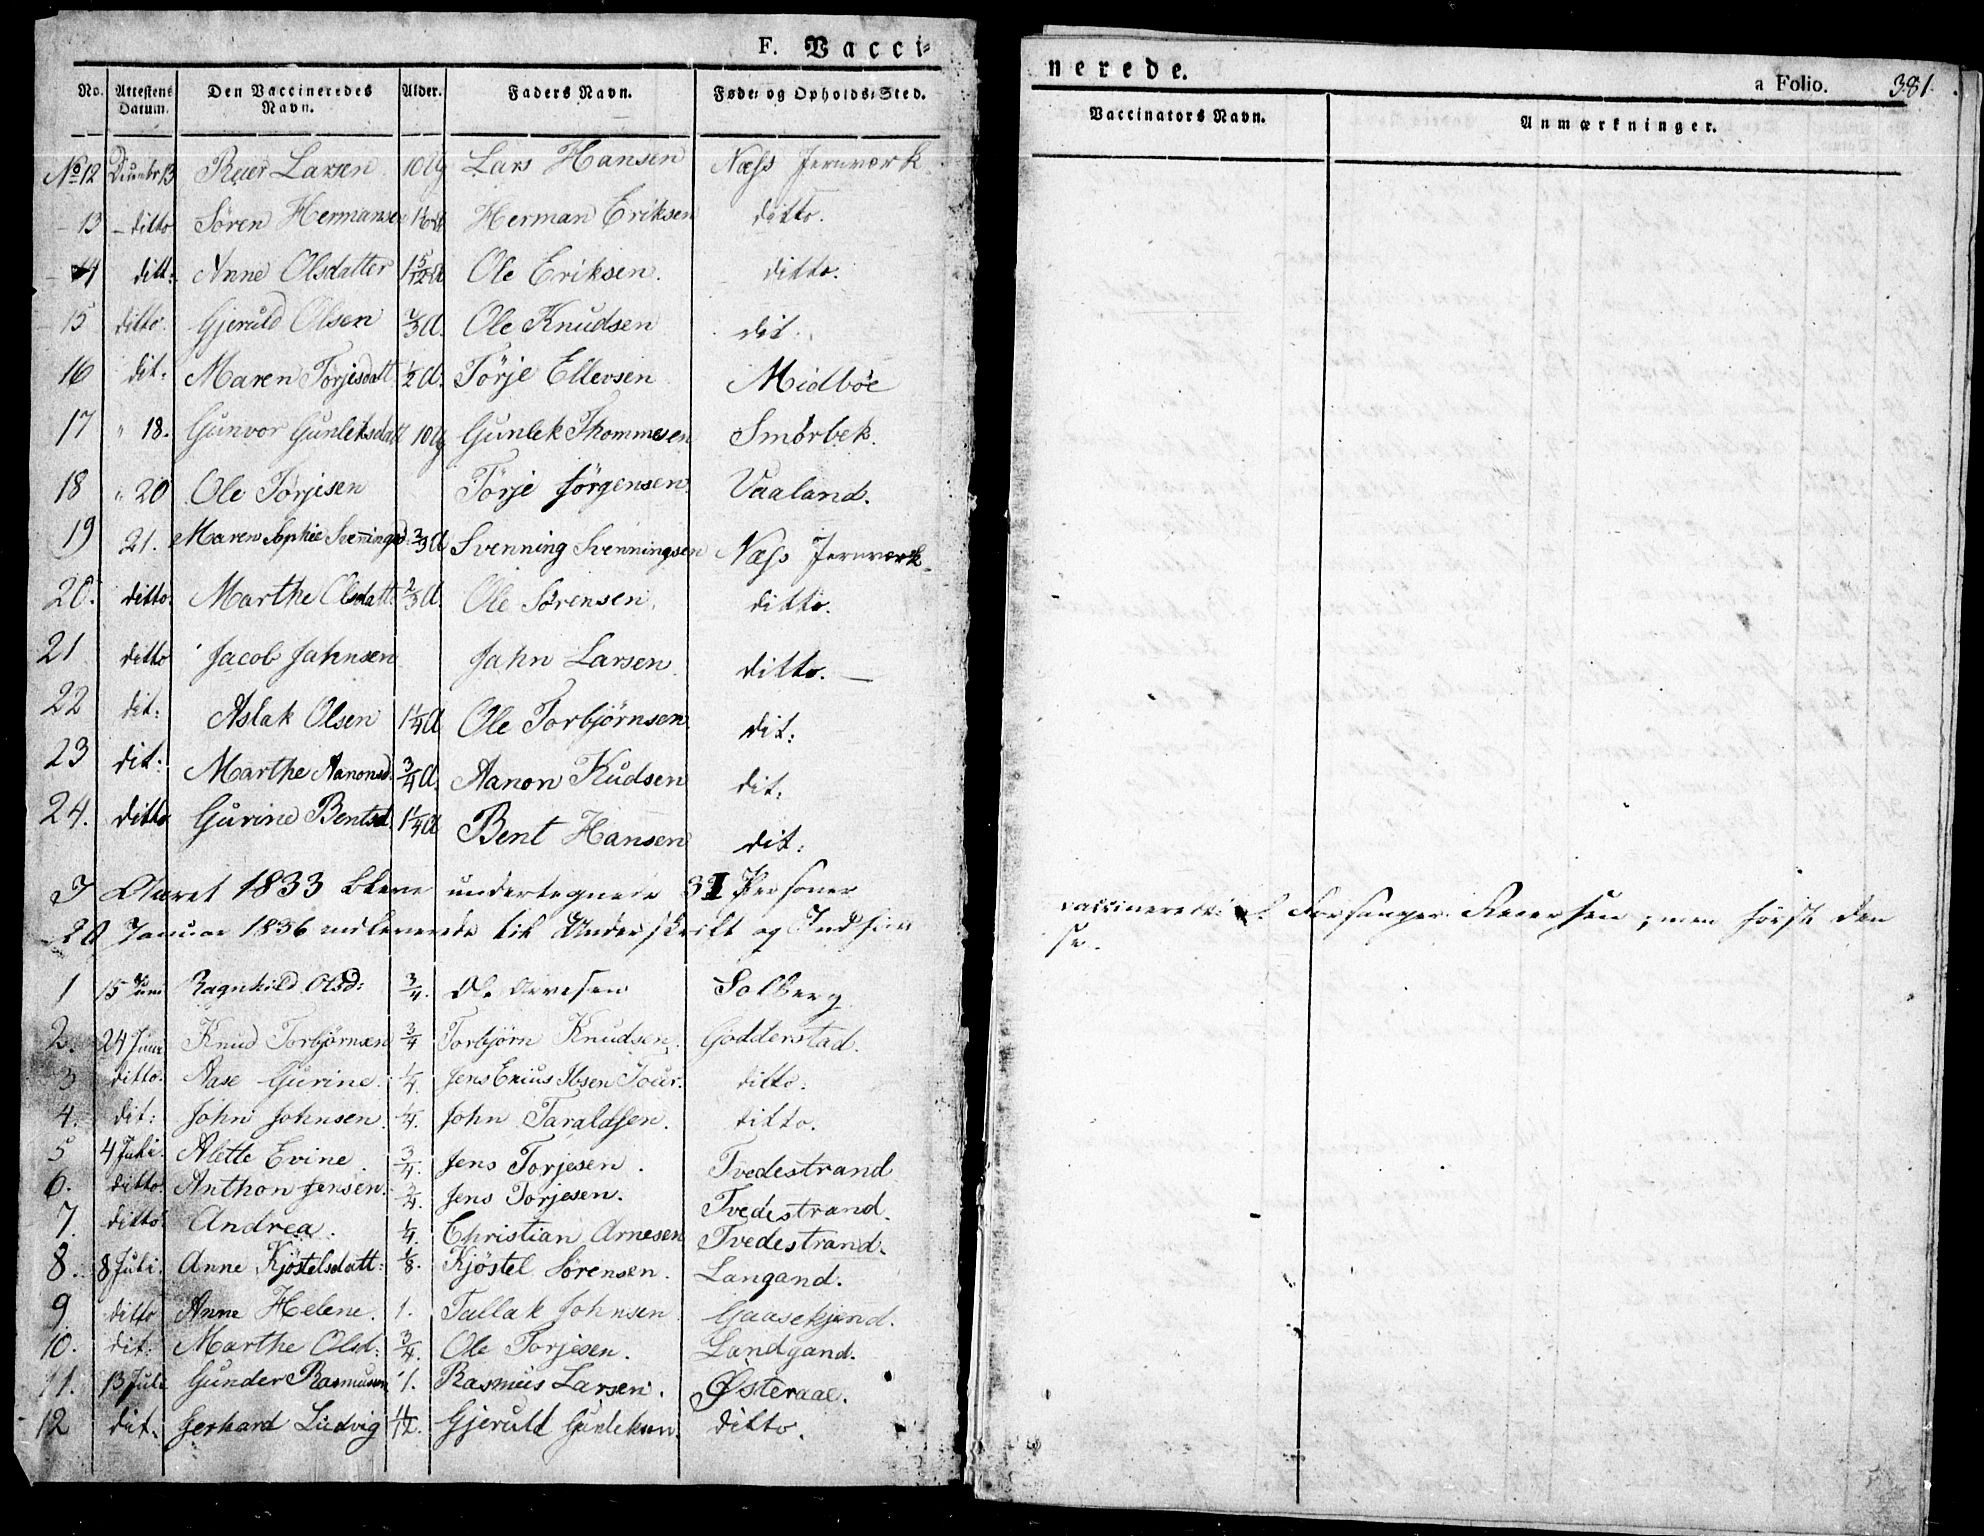 F. Vacci=
No. Attestens Datum. Den Vaccineredes Navn. Alder. Faders Navn. Føde- og Opholds-Sted.
No 12 13 Reier Larsen Lars Hansen Næss Jernværk
13 ditto Sören Hermansen Herman Eriksen ditto.
14 ditt: Anne Olsdatter 1 5/12 A Ole Eriksen. ditto.
15 ditto. Gjeruld Olsen Ole Knudsen dit.
16 dit: Maren Torjisdatt 1/2 A. Törje Ellevsen Midböe
17 " 18. Gunvor Gunleksdatt Gunlek Thommesen Smörbek.
18 " 20 Ole Törjesen Törje Jörgensen Vaaland.
19 21. Maren Sophie Svenningsd: 2/3 A Svenning Svenningsen Næss Jernværk
20. ditto. Marthe Olsdatt. 2/3 A. Ole Sörensen. ditto.
21 ditto Jacob Jahnsen Jahn Larsen ditto.
22 dit: Aslak Olsen 1 1/4 A Ole Torbjörnsen dit:
23 dit: Marthe Aanonsd. 3/4 A. Aanon Kudsen dit:
24. ditto Gurine Bentsd. 1 1/4 A Bent Hansen dit:
I Aaret 1833 bleve undertegnede Personer
20 Januar 1836 til Underskrift og
1 15 Juni Ragnhild Olsd: 3/4. Ole Solberg
2. 24 Juni Knud Torbjörnsen 3/4 Torbjörn Knudsen. Godderstad.
3 ditto. Aase Gurine. 1/4. Jens Ibsen ditto.
4. dit: John Johnsen. 1/4. John Taraldsen. ditto.
5 4 Juli. Alette Evine 3/4. Jens Torjesen. Tvedestrand
6. ditto. Anthon Jensen. 3/4. Jens Torjesen. Tvedestrand.
7. ditto Andrea. 1/4. Christian Arnesen Tvedestrand.
8. 8 Juli. Anne Kjöstelsdatt: 1/8. Kjöstel Sörensen. Langand.
9. ditto Anne Helene. 1. Tallak Johnsen
10. dit: Marthe Olsd: 3/4. Ole Torjesen. Landgand.
11. 13 Juli Gunder Rasmusen 1. Rasmus Larsen. Østeraae.
12 dit. Gerhard Ludvig Gjeruld Gunleksen. ditto.
nerede.
a Folio. 381.
Vaccinators Navn. Anmærkninger.
vaccinerede af Forsanger men först den